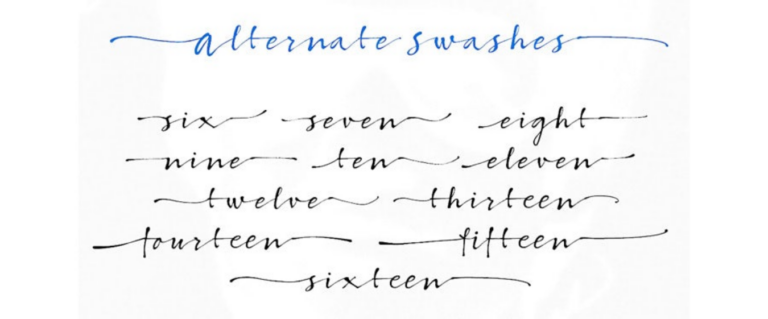 alternate swashes
six seven eight
nine ten eleven
twelve thirteen
fourteen fifteen
sixteen